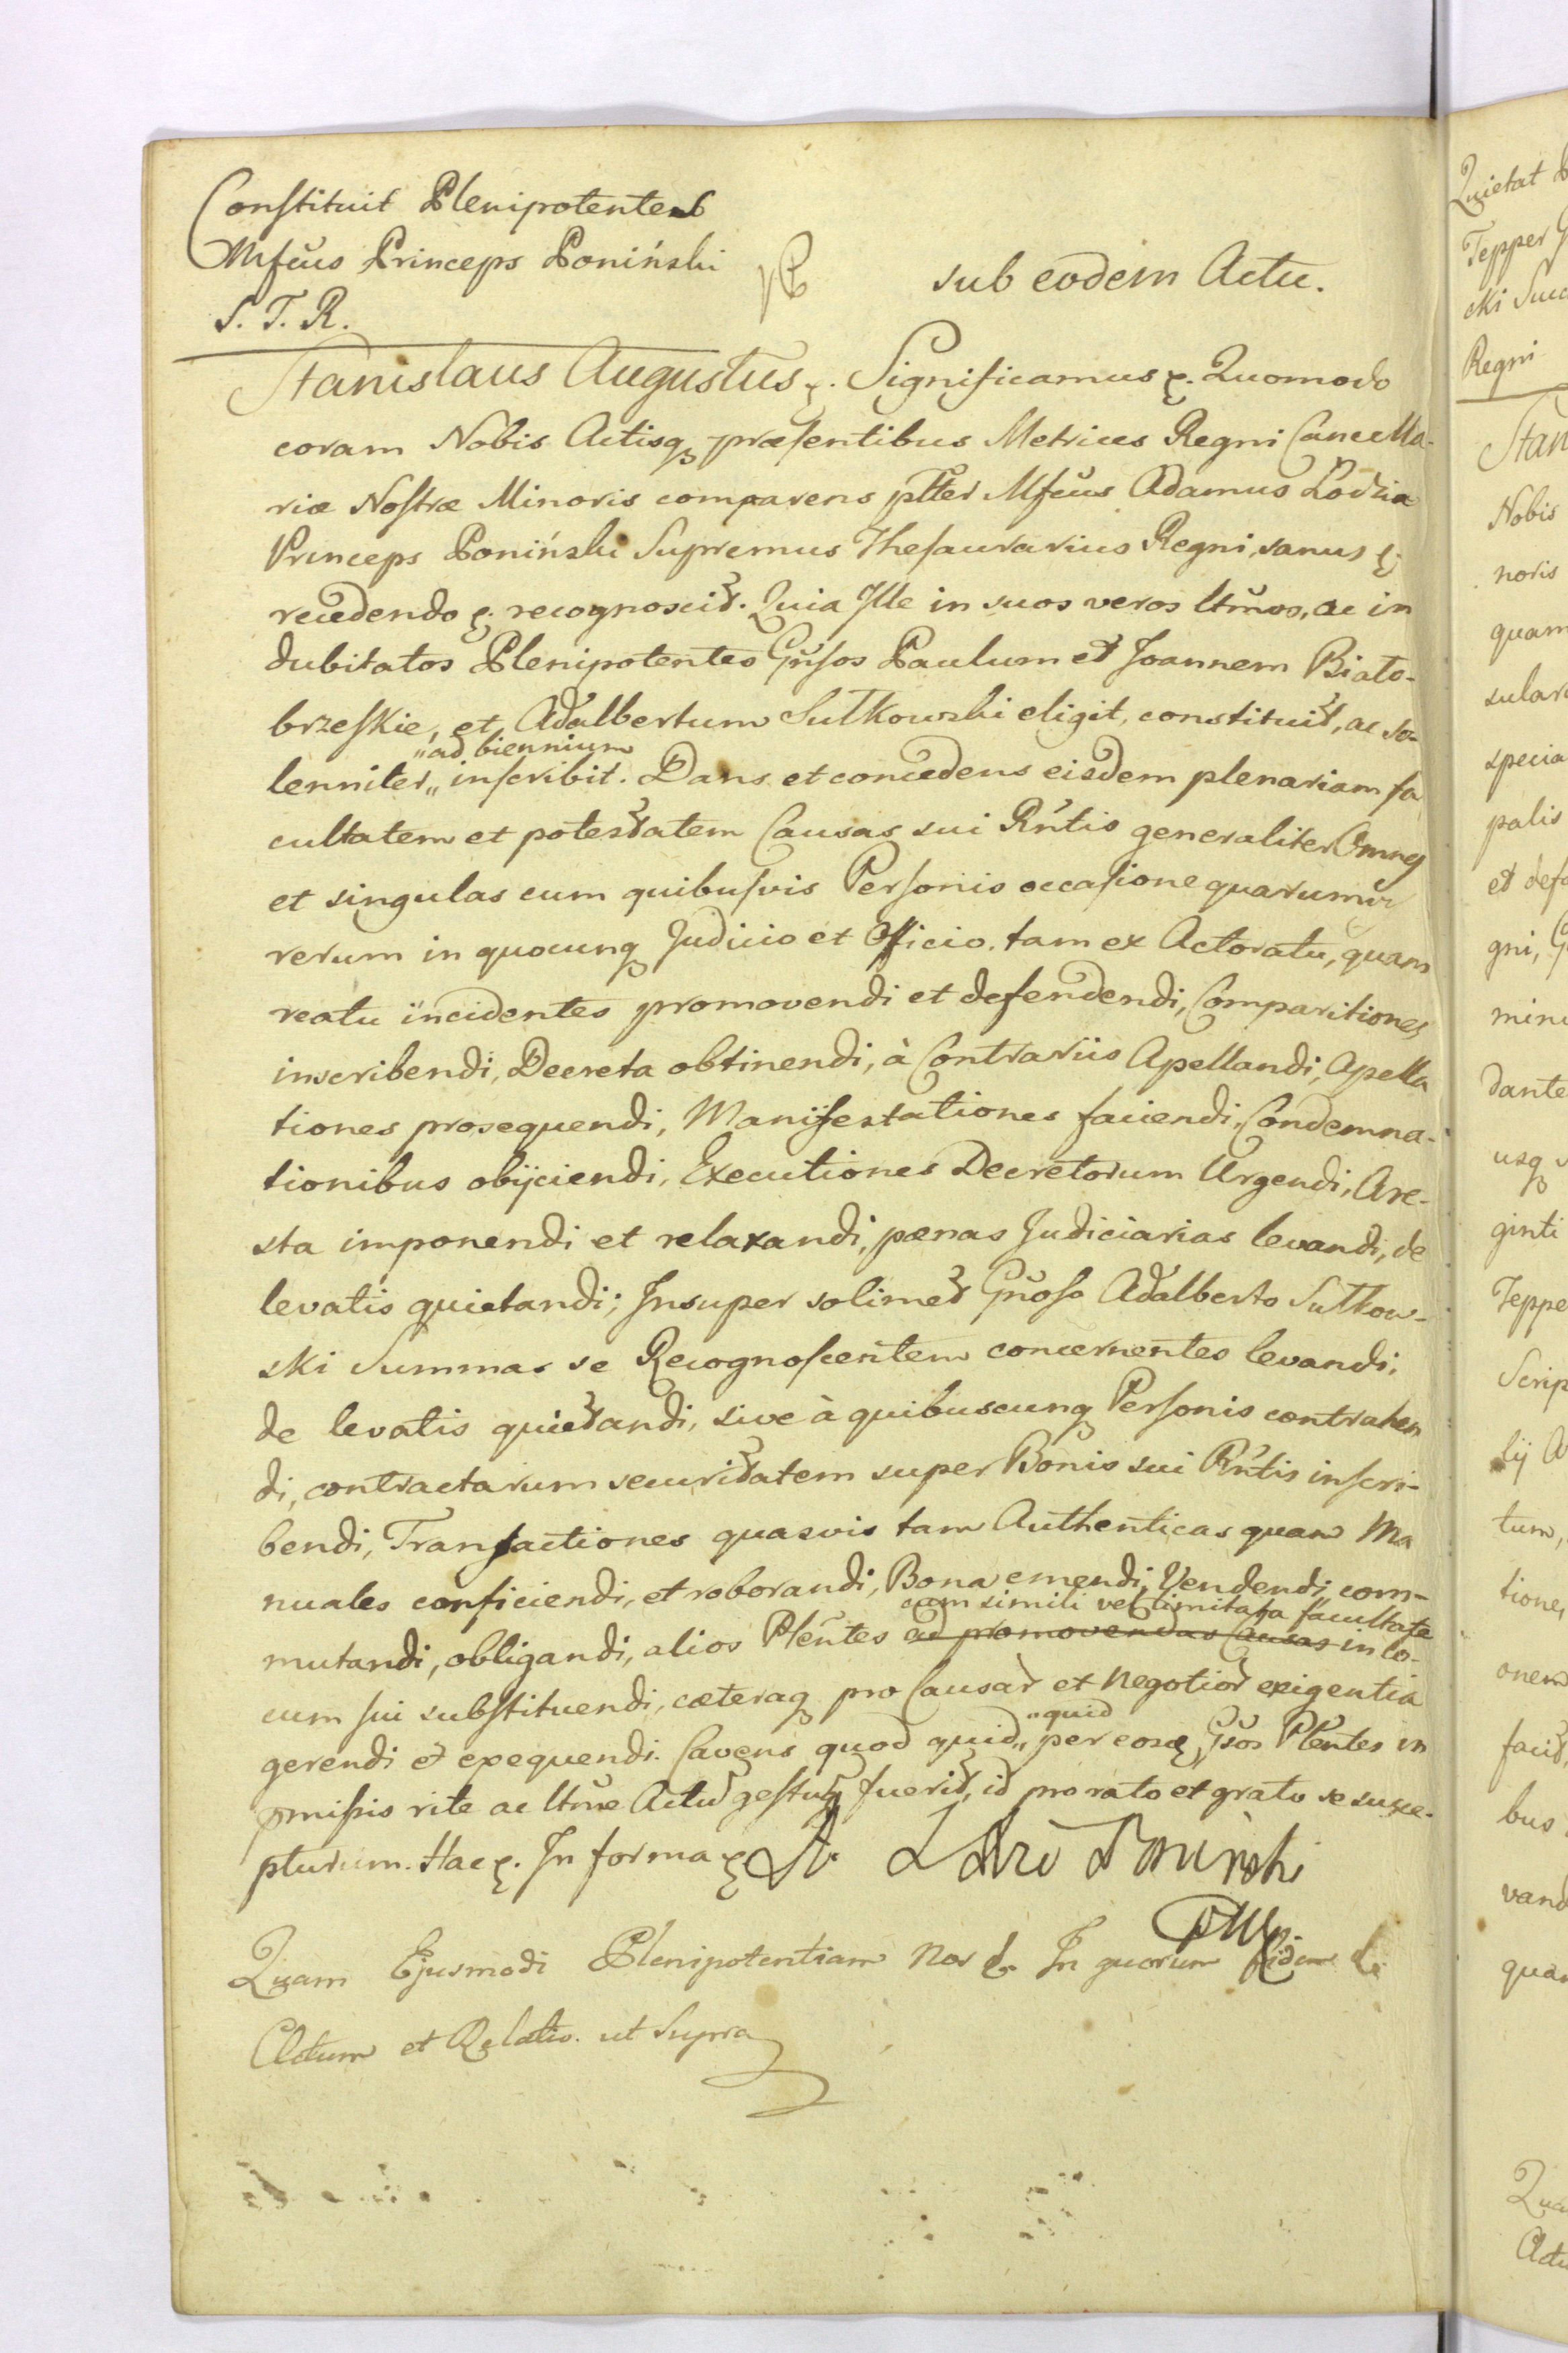 Constituit Plenipotentes
Mfcus Princeps Poniński
S. T. R.
sub eodem Actu.
Stanislaus Augustus &. Significamus &. Quomodo
coram Nobis Actisq præsentibus Metrices Regni Cancella-
riæ Nostræ Minoris comparens pltter Mfcus Adamus Lodzia
Princeps Poniński Supremus Thesaurarius Regni, sanus &
recedendo &. recognoscit. Quia Ille in suos veros ltmos, ac in
dubitatos Plenipotentes Gnsos Paulum et Joannem Biało-
brzeskie, et Adalbertum Sułkowski eligit, constituit, ac so-
lenniter „ad biennium„ inscribit. Dans et concedens eisdem plenariam fa
cultatem et potestatem Causas sui Rntis generaliter Omnes
et singulas cum quibusvis Personis occasione quarumvis
rerum in quocunq Judicio et Officio, tam ex Actoratu, quam
reatu incidentes promovendi et defendendi, Comparitiones
inscribendi, Decreta obtinendi, à Contrariis Apellandi, Apella
tiones prosequendi, Manifestationes faciendi, Condemna-
tionibus obijciendi, Executiones Decretorum Urgendi, Are-
sta imponendi et relaxandi, pænas Judiciarias levandi, de
levatis quietandi; Insuper solimet Gnoso Adalberto Sułkow-
ski Summas se Recognoscentem concernentes levandi,
de levatis quietandi, sive à quibuscunq Personis contrahen
di, contractarum securitatem super Bonis sui Rntis inscri-
bendi, Transactiones quasvis tam Authenticas quam Ma
nuales conficiendi, et roborandi, Bona emendi, Vendendi, com-
mutandi, obligandi, alios Plentes ad promovendas Causas cum simili vel limitata facultate in lo-
cum sui substituendi, cæteraq pro Causar et Negotior exigentia
gerendi et exequendi. Cavens quod quid„ „quid per eosd Gsos Plentes in
pmissis rite ac ltme Actu gestuq fuerit, id pro rato et grato se susce-
pturum. Hac &. In forma & A. Łodzia Poniński
Quam Ejusmodi Plenipotentiam Nos &. In quorum fidem &
Actum et Relatio. ut Supra
Quietat
Tepper
cki Succ
Regni
Stan
Nobis
noris
quam
sular
specia
palis
et defe
gni,
minu
dante
usq
ginti
Teppe
Scrip
lij
tum,
tiones
onem
facit,
bus
vand
quam
Qua
Actu